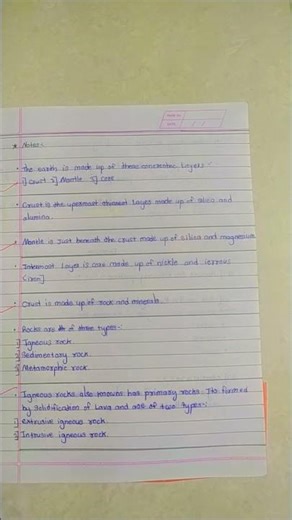 * Notes:-
• The earth is made up of three concentric layers:-
1] Crust 2] Mantle 3] Core
• Crust is the uppermost layer made up of silica and
alumina.
• Mantle is just beneath the crust made up of silica and magnesium
• Innermost layer is core made up of nickle and ferrous
(iron)
• Crust is made up of rock and minerals
• Rocks are of three types:-
1] Igneous rock.
2] Sedimentary rock.
3] Metamorphic rock.
• Igneous rocks also known has primary rocks. Its formed
by solidification of lava and are of two types:-
1] extrusive igneous rock.
2] Intrusive igneous rock.